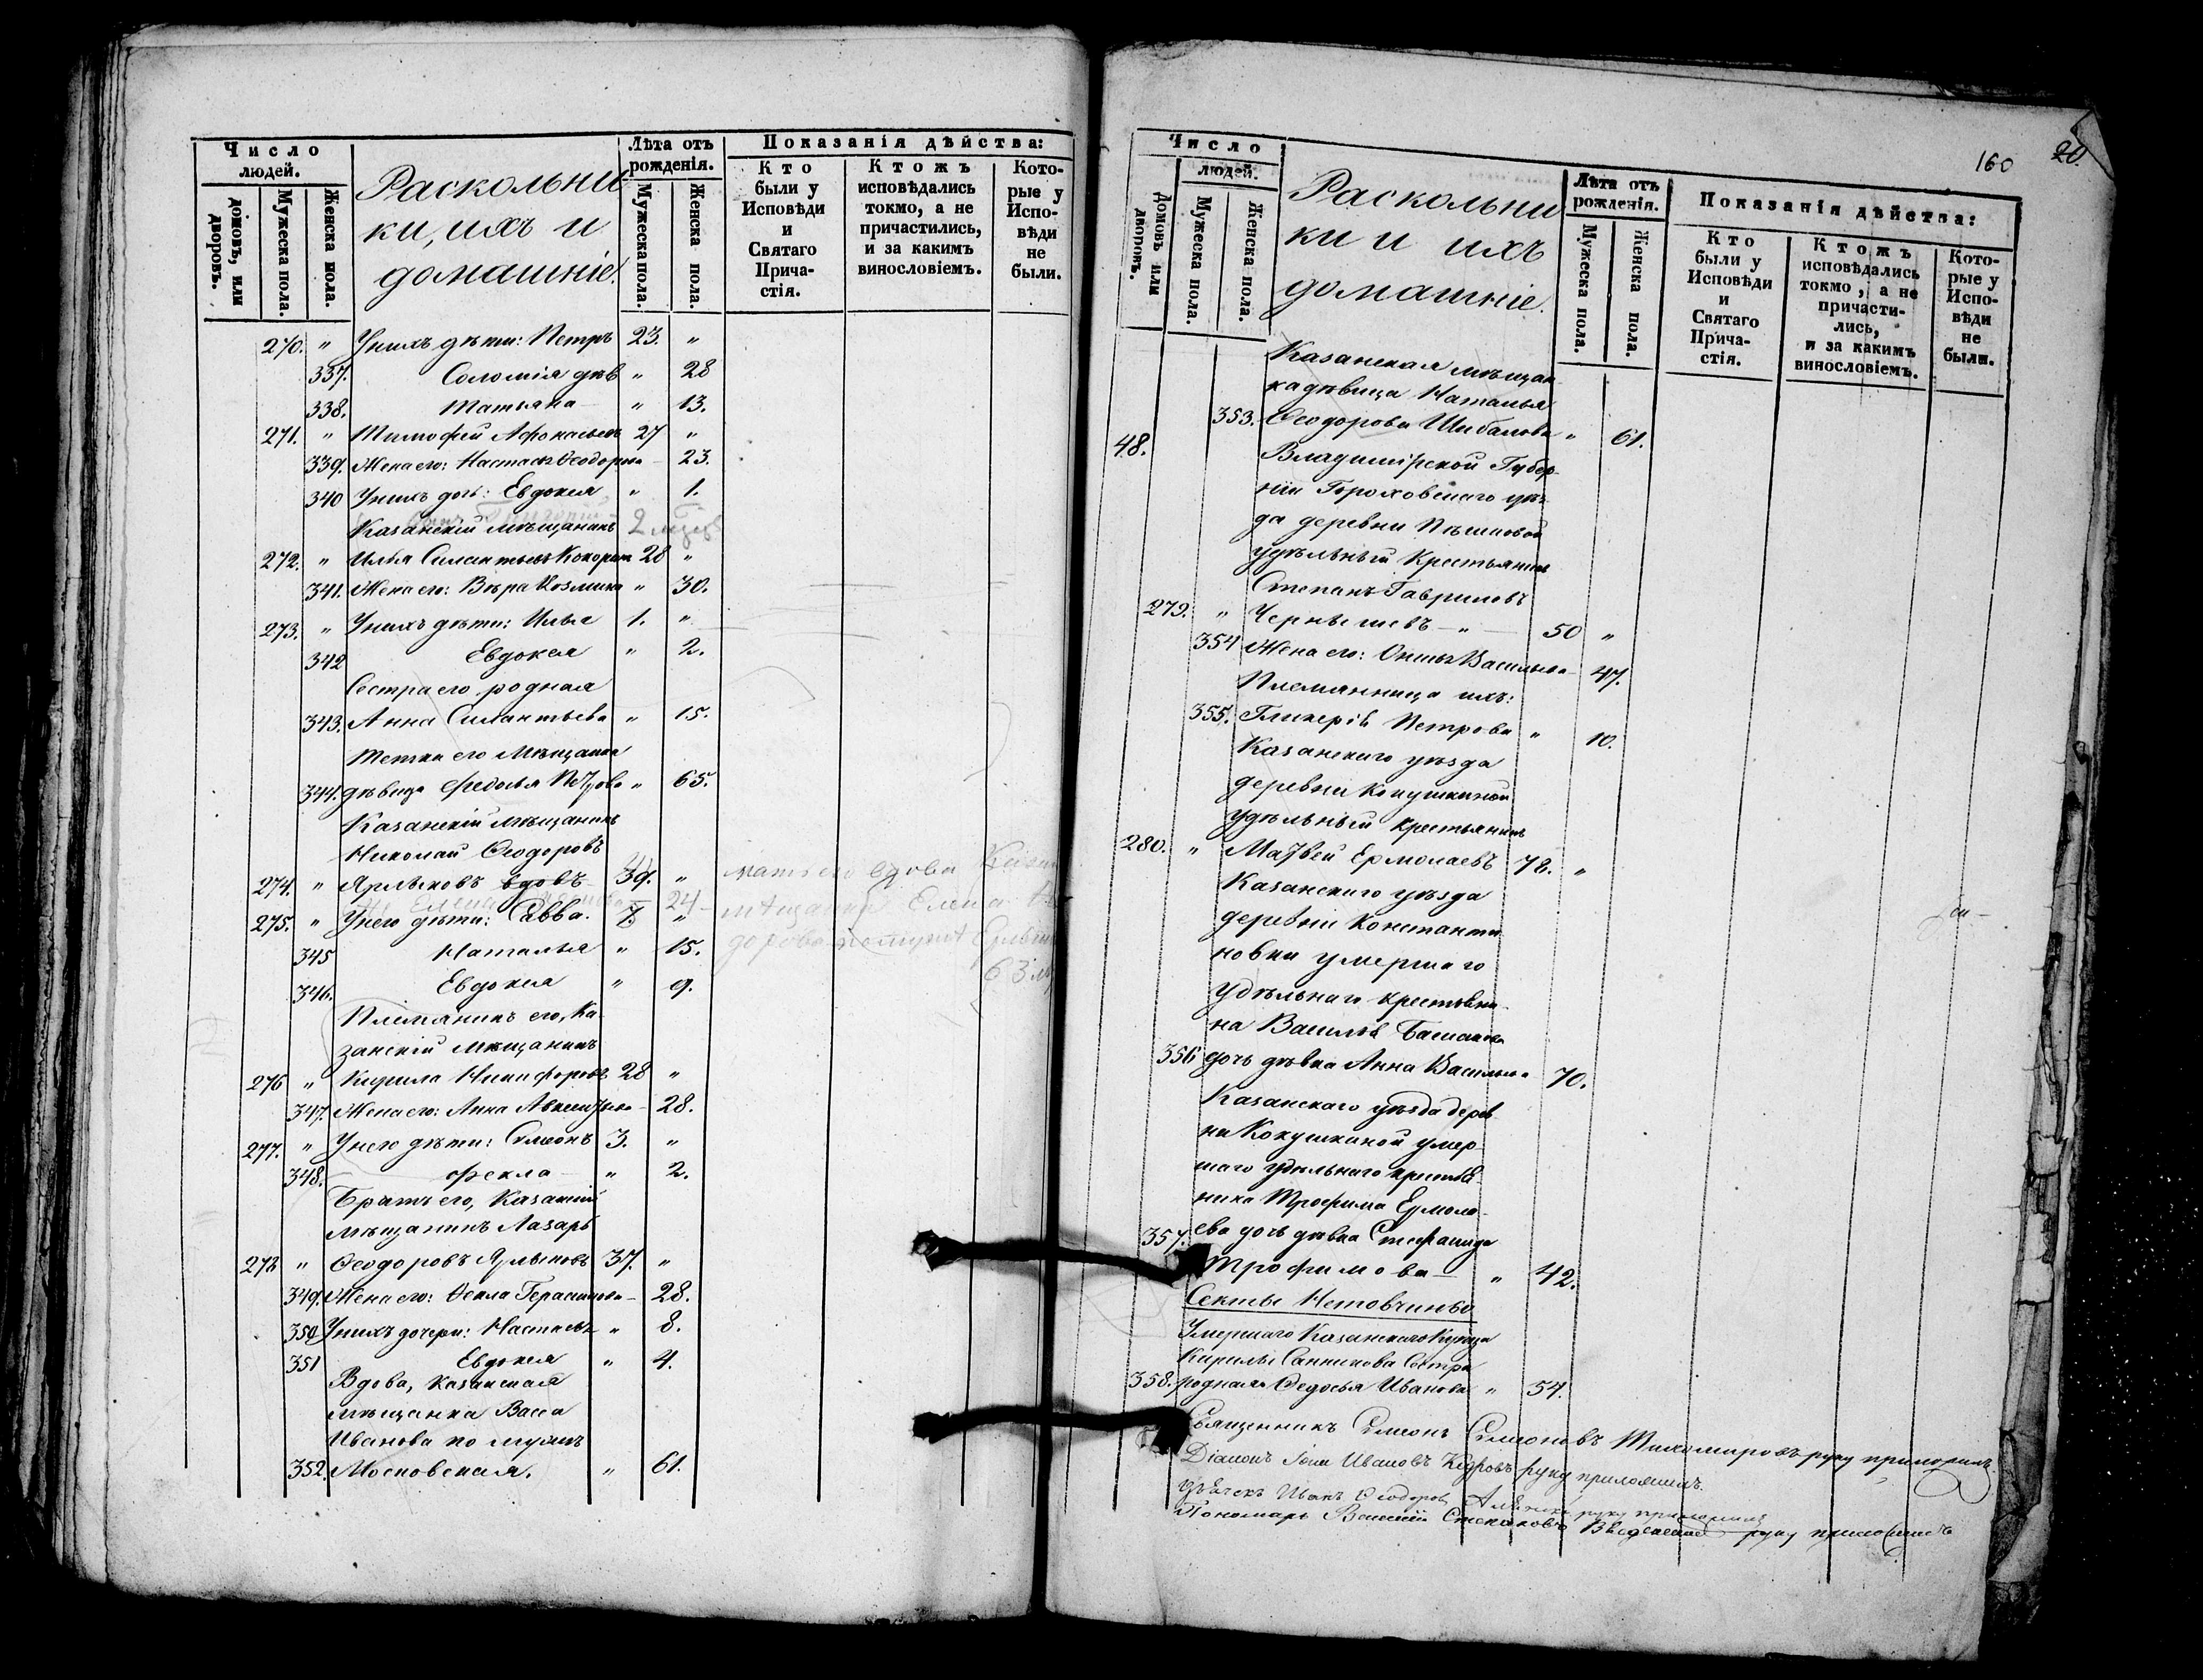 Число людей.
домовъ, или дворовъ.
Мужеска пола.
Женска пола.
Раскольни
ки, ихъ и
домашніе.
Лѣта отъ рожденія.
Мужеска пола.
Женска пола.
Показанія дѣйства:
Кто были у Исповѣди и Святаго Прича-стія.
Ктожъ исповѣдались токмо, а не причастились, и за какимъ винословіемъ.
Кото-рые у Испо-вѣди не были.
270. " У нихъ дѣти: Петръ 23. "
337. Соломія дѣв " 28
338. Татьяна " 13.
271. " Тимофей Афонасьевъ 27 "
339. Жена его: Настасья Ѳеодорова 23.
340 У нихъ дочь: Евдокея " 1.
Казанскій мѣщанинъ
272. " Илья Силантьевъ Кокорин 28 "
341. Жена его: Вѣра Козмина " 30.
273. " У нихъ дѣти: Илья 1. "
342 Евдокея " 2.
Сестра его родная
343. Анна Силантьева " 15.
Тетка его мѣщанка
344. дѣвица Федосья Петрова " 65.
Казанскій мѣщанинъ
Николай Ѳеодоровъ
274. " Ярлыковъ вдовъ 39. " мать его вдова
275. " У него дѣти: Савва. 7. " мѣщанка Елена
345 Наталья " 15.
346. Евдокея " 9.
Племяникъ его, Ка-
занскій мѣщанинъ
276 " Кирила Никифоровъ 28 "
347. Жена его: Анна 28.
277. " У него дѣти: Симеонъ 3. "
348. Фекла " 2.
Братъ его, Казанскій
мѣщанинъ Лазарь
278 " Ѳеодоровъ Ярлыковъ 37. "
349. Жена его: Ѳекла Герасимова 28.
350 У нихъ дочери: Настасья " 8.
351 Евдокея " 4.
Вдова, Казанская
мѣщанка Васса
Иванова по мужѣ
352. Московская. " 61.
160 20.
Число людей.
домовъ или дворовъ.
Мужеска пола.
Женска пола.
Раскольни
ки и ихъ
домашніе.
Лѣта отъ рожденія.
Мужеска пола.
Женска пола.
Показанія дѣйства:
Кто были у Исповѣди и Святаго Прича-стія.
Ктожъ исповѣдались токмо, а не причасти-лись, и за какимъ винословіемъ.
Кото-рые у Испо-вѣди не были.
Казанская мѣщан
ка дѣвица Наталья
353. Ѳеодорова Шибалова " 61.
48. Владимірской Губер-
ніи Гороховскаго уѣз-
да деревни
удѣльный крестьянинъ
Степанъ Гавриловъ
279. " Чернышевъ " 50 "
354 Жена его: Васильева 47.
Племянница ихъ:
355. Гликерія Петрова " 10.
Казанскаго уѣзда
деревни Кокушкиной
удѣльный крестьянинъ
280. " Матвей Ермолаевъ 78. "
Казанскаго уѣзда
деревни Константи
новки умершаго
удѣльнаго крестьяни-
на Василья
356 дочь дѣвка Анна Васильева 70.
Казанскаго уѣзда дерев
ни Кокушкиной умер-
шаго удѣльнаго крестья
нина Трофима Ермола-
357. ева дочь дѣвка Стефанида
Трофимова " 42.
Секты Нетовчины
Умершаго Казанскаго Купца
Кирилы Санникова Сестра
358. родная Ѳедосья Иванова " 54.
Священникъ Симеонъ Симеоновъ Тихомировъ руку приложилъ.
Діаконъ Іоан Ивановъ Кедровъ руку приложилъ.
Дьячекъ Иванъ Ѳеодоров руку приложилъ
Пономарь Василій Степановъ Введенскій руку приложилъ